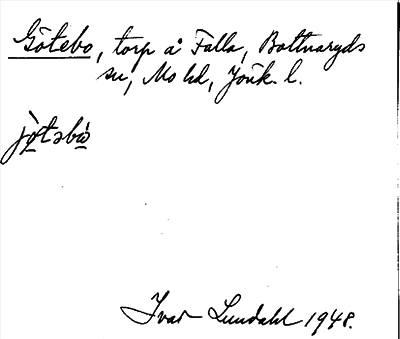 Götebo, torp å Falla, Bottnaryds
sn, Mo hd, Jönk. l.
jø̀tebò
Ivar Lundahl 1948.